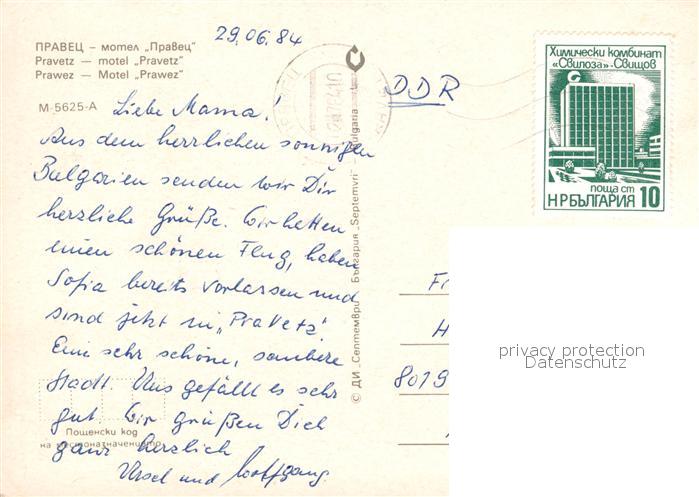 29.06.84
ПРАВЕЦ – мотел „Правец“
Pravetz – motel „Pravetz“
Prawez – Motel „Prawez“
М-5625-А
Liebe Mama!
Aus dem herrlichen sonnigen
Bulgarien senden wir Dir
herzliche Grüße. Wir hatten
einen schönen Flug, haben
Sofia bereits verlassen und
sind jetzt in „Pravetz“.
Eine sehr schöne, saubere
Stadt. Uns gefällt es sehr
gut. Wir grüßen Dich
ganz herzlich
Ursel und Wolfgang
Пощенски код
на местоназначението
© ДИ „Септември“ България „Septemvri“ Bulgaria
DDR
Химически комбинат
«Свилоза»-Свищов
поща ст
НРБЪЛГАРИЯ 10
Fr
H
8019
privacy protection
Datenschutz